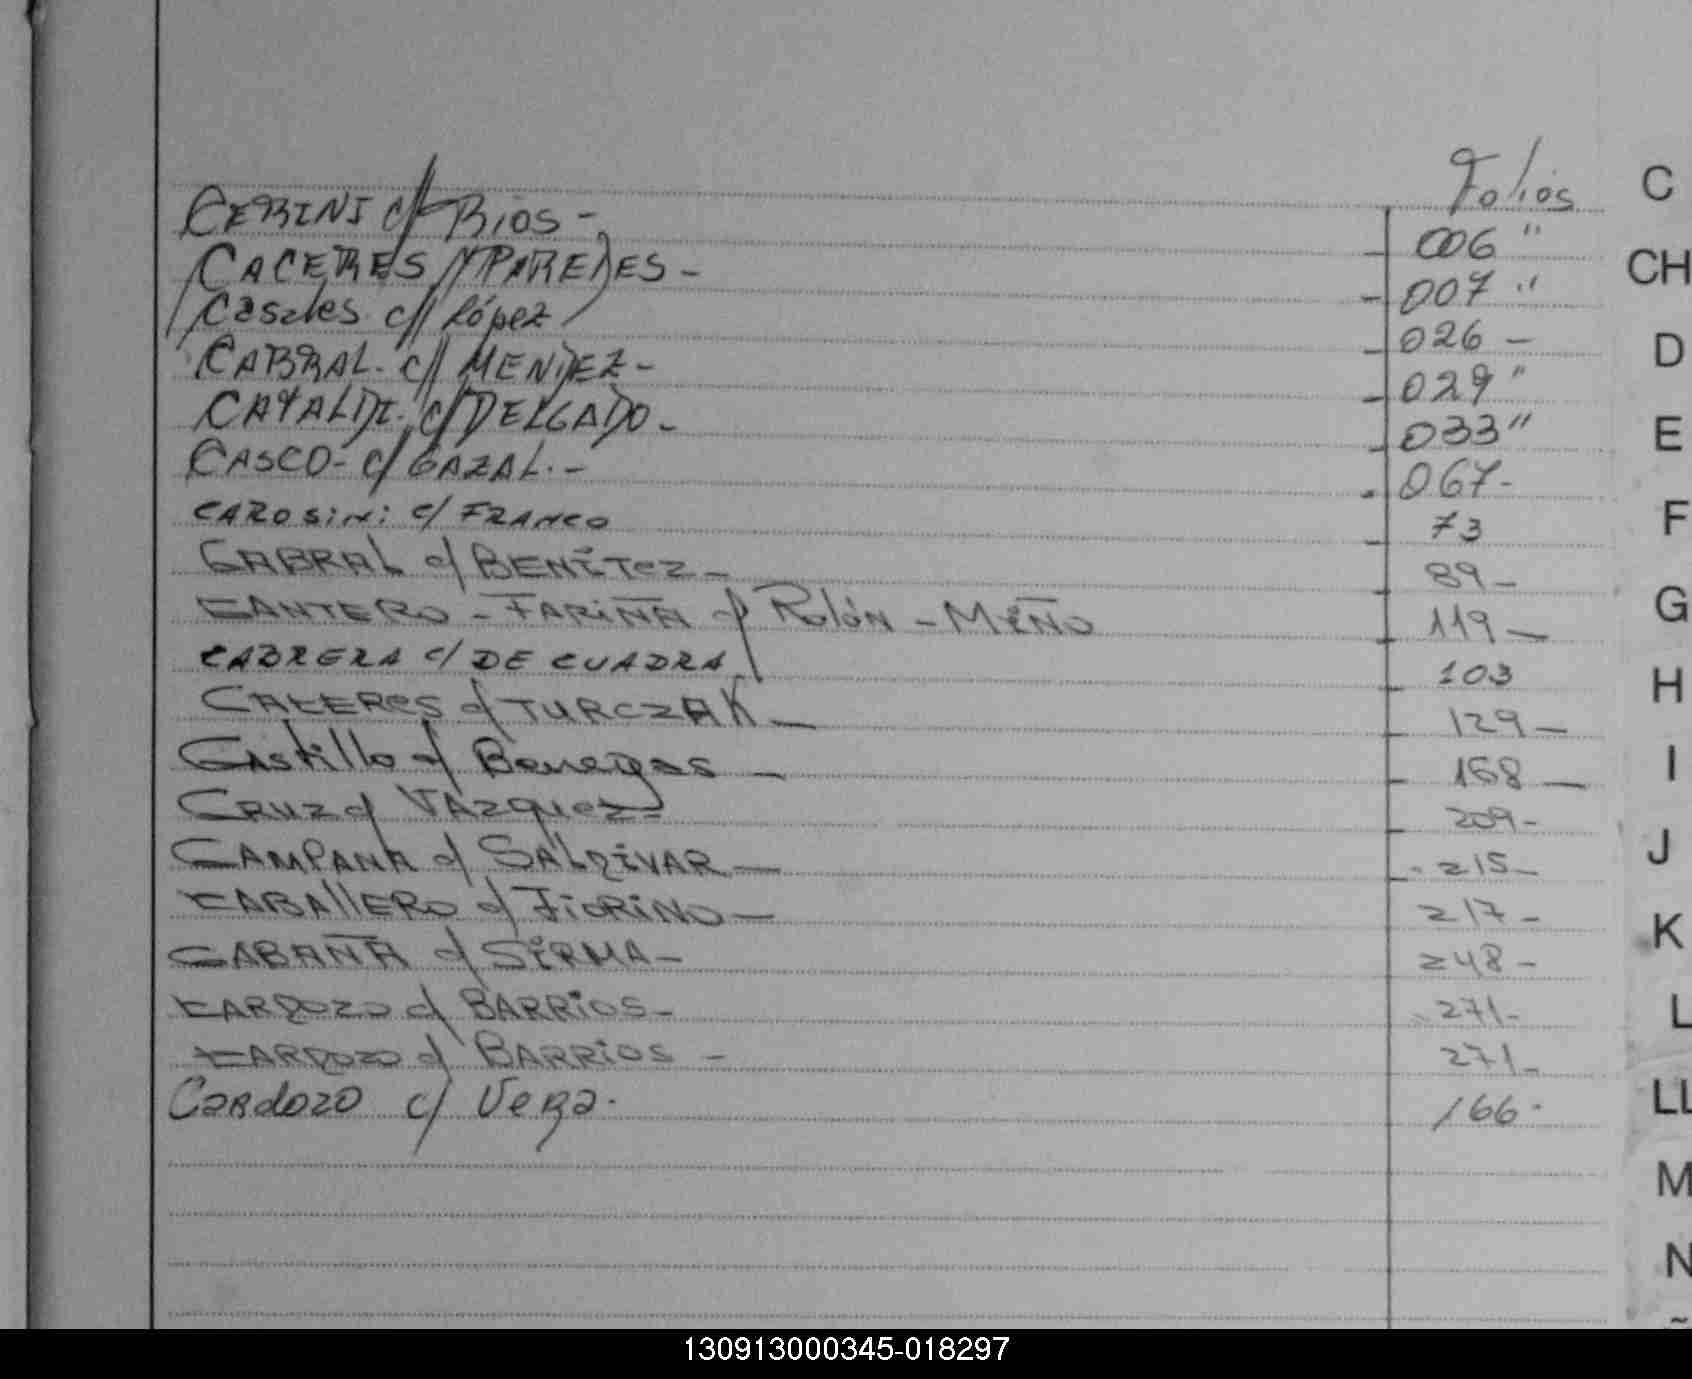 Folios
CERINI c/ RIOS - 006 "
CACERES // PAREDES - 007 "
Casales c// López 026 -
CABRAL. c// MENDEZ - 029 "
CATALDI. c/ DELGADO - 033 "
CASCO - c/ GAZAL. - 067 -
CAROSINI c/ FRANCO 73
CABRAL c/ BENITEZ - 89 -
CANTERO - FARIÑA c/ Rolón - MIÑO 119 -
CABRERA c/ DE CUADRA 103
CACERES c/ TURCZAK - 129 -
Castillo c/ Benegas - 168 -
CRUZ c/ VAZQUEZ 209 -
CAMPANA c/ SALDIVAR - 215 -
CABALLERO c/ FIORINO - 217 -
CABAÑA c/ SIRMA - 248 -
CARDOZO c/ BARRIOS - 271 -
CARDOZO c/ BARRIOS - 271 -
Cardozo c/ Vera. 166 -
C
CH
D
E
F
G
H
I
J
K
L
LL
M
N
130913000345-018297